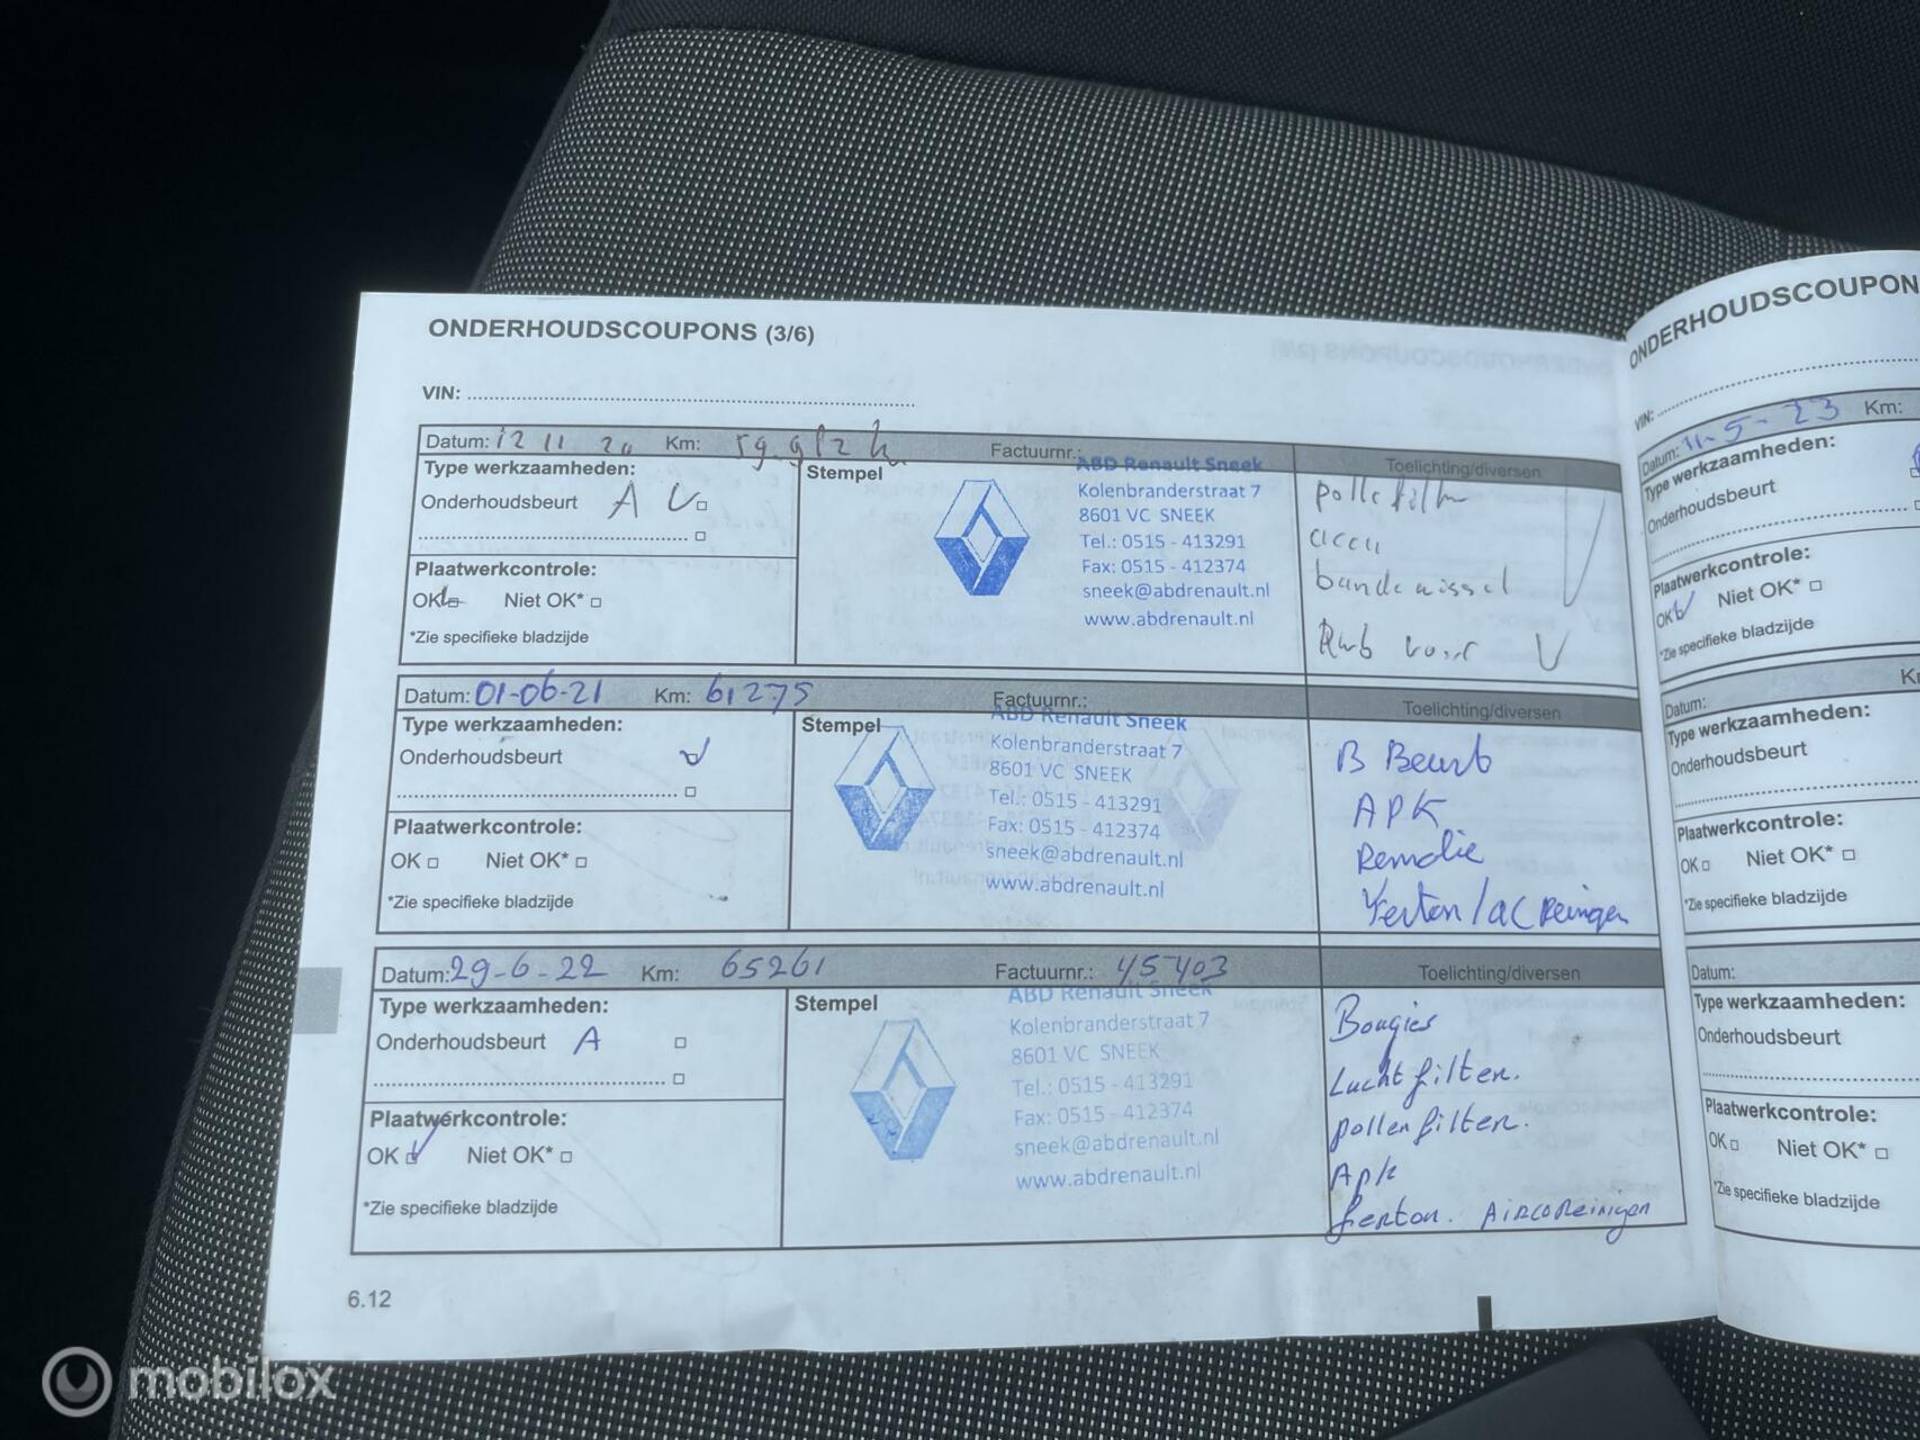 ONDERHOUDSCOUPONS (3/6)
VIN:
Datum: 12 11 20 Km: Factuurnr.:
Type werkzaamheden:
Onderhoudsbeurt A
Plaatwerkcontrole:
OK Niet OK*
*Zie specifieke bladzijde
Stempel
ABD Renault Sneek
Kolenbranderstraat 7
8601 VC SNEEK
Tel.: 0515 - 413291
Fax: 0515 - 412374
sneek@abdrenault.nl
www.abdrenault.nl
Toelichting/diversen
accu
bandenwissel
voor
Datum: 01-06-21 Km: 61275 Factuurnr.:
Type werkzaamheden:
Onderhoudsbeurt
Plaatwerkcontrole:
OK Niet OK*
*Zie specifieke bladzijde
Stempel
ABD Renault Sneek
Kolenbranderstraat 7
8601 VC SNEEK
Tel.: 0515 - 413291
Fax: 0515 - 412374
sneek@abdrenault.nl
www.abdrenault.nl
Toelichting/diversen
B Beurt
APK
Remolie
Ferton/ac Reinigen
Datum: 29-6-22 Km: 65261 Factuurnr.: 45403
Type werkzaamheden:
Onderhoudsbeurt A
Plaatwerkcontrole:
OK Niet OK*
*Zie specifieke bladzijde
Stempel
ABD Renault Sneek
Kolenbranderstraat 7
8601 VC SNEEK
Tel.: 0515 - 413291
Fax: 0515 - 412374
sneek@abdrenault.nl
www.abdrenault.nl
Toelichting/diversen
Bougies
Luchtfilter.
pollenfilter.
Apk
ferton. Aircoreinigen
6.12
ONDERHOUDSCOUPON
VIN:
Datum: 11-5-23 Km:
Type werkzaamheden:
Onderhoudsbeurt
Plaatwerkcontrole:
OK Niet OK*
*Zie specifieke bladzijde
Datum:
Type werkzaamheden:
Onderhoudsbeurt
Plaatwerkcontrole:
OK Niet OK*
*Zie specifieke bladzijde
Datum:
Type werkzaamheden:
Onderhoudsbeurt
Plaatwerkcontrole:
OK Niet OK*
*Zie specifieke bladzijde
mobilox